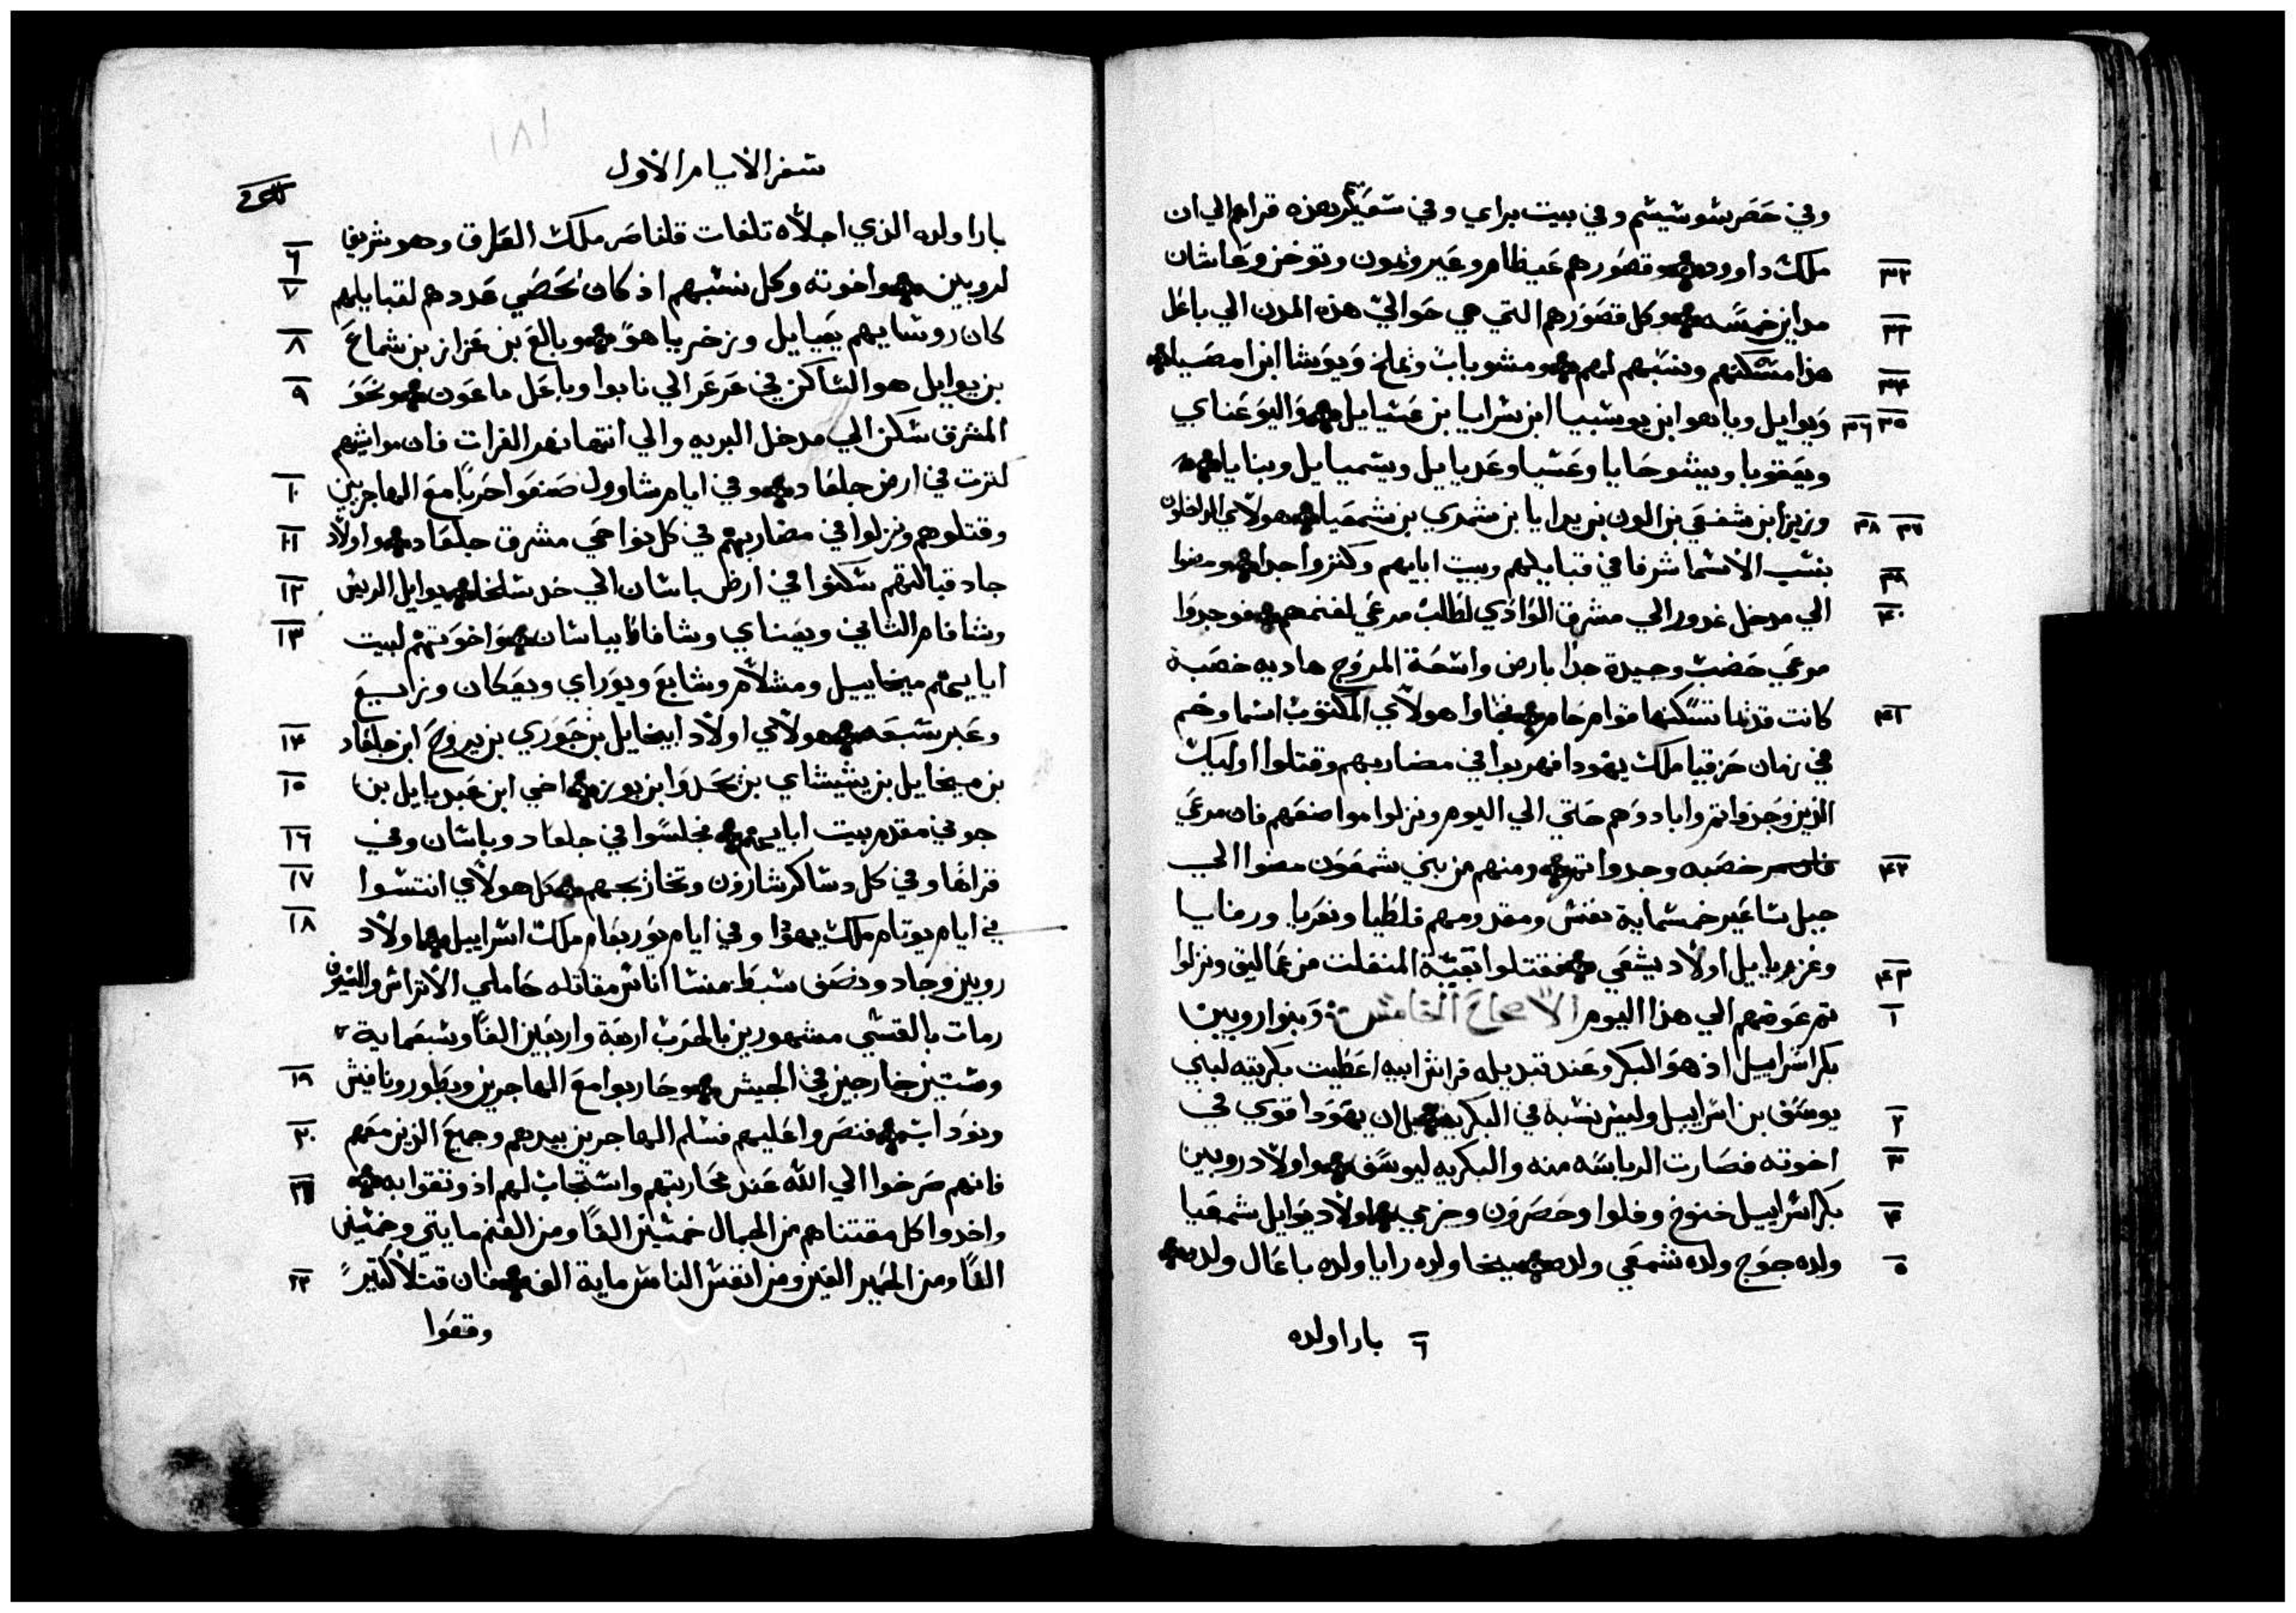 وفي حَصَر بشوشيشم وفي بيت براي وفي شعَيْكر بهذه قراهم الي ان
٣٢ ملكت داوود وقصَورهم عَيظام وعَير وثمون وتوخز وعَاشان
٣٣ مداين خمسَه وكل قصَوَرهم التي هي حَوالي هذه المدن الي باعَل
٣٤ هذا مشكنهم ونسَبهم لهم ومشوبابَ وثملخ وَيوَشا ابن امصَيا
٣٥ ٣٦ وَيوايل وياهوا بن يوشبيا ابن شرايا بن عَشيايل وَاليوَعَناي
ويعَقوبا ويشوحَايا وعَشيا وعَديايل ويشميايل وبنايا
٣٧ ٣٨ وزيزا بن شفعَي بن الون بن يدايا بن شمري بن شمعَيا هولاي الداخلون
٣٩ بنسَب الاسَما شرفا في قبايلهم وبيت ابايهم وكثروا جدا ومضوا
٤٠ الي مدخل غدور الي مشرق الوَادَي لطَلبَ مرعَي لغنمهم فوجدوَا
مرعَي خَصَبَ وجيدة جدًا بارض واسَعَة المروَج هاديه خصَبة
٤١ كانت قديما تسَكنها قوام حَام فجاوا هولاي المكتوَبَ اسَما وهم
في زمان حَزقيا ملك يهودا فهربَوا في مضاربهم وقتلوا اوليك
الذين وَجَدوَا ثم وابادوَهم حَتي الي اليوم ونزلوا مواضعَهم فان مرعَي
٤٢ خصَبه وجدوا ثم ومنهم من بني شمعَوَن مضوا الي
جبل سَاعَير خمسَماية نفسَ ومقدومهم فلطَيا ونعَريا ورفايا
٤٣ وعَزيايل اولاد يشعَي فقتلوا بقيَة المنفلت من عَماليق ونزلوا
١ ثم عَوضهم الي هذا اليوم الاصحاح الخامس وَبنوا روبين
بكر اسَراييل اذ هوَ البكر وعَند تبديله فراش ابيه اعَطَيت بكريته لبني
٢ يوسَف بن اسَراييل وليسَ نسَبه في البكريه بل ان يهوَدا قوي في
٣ اخوته فصَارت الرياسَه منه والبكريه ليوسَف واولاد روبين
٤ بكر اسَراييل خنوخ وفلوا وحَصَرَون وخرمي اولاد يوَايل شمعَيا
٥ ولده جوَج ولده شمعَي ولده ميخا ولده رايا ولده باعَال ولده
٦ بارا ولده
سَفر الايام الاول
بارا ولده الذي اجلاه تلغات فلناصَر ملك العَراق وهو شريفا
٦ ٧ لروبين واخوته وكل نسَبهم اذ كان تحَصَي عَددهم لقبايلهم
٨ كان روسَايهم يعَيايل وزخرياهوَ وبالعَ بن عَزاز بن شماعَ
٩ بن يوايل هو السَاكن في عَرعَر الي نابوا وباعَل ماعَون ونحَوَ
المشرق سَكن الي مدخل البريه والي انتها نهر الفرات فان مواشيهم
١٠ كثرت في ارض جلعَاد وفي ايام شاوول صَنعَوا حَربًا معَ المهاجرين
١١ وقتلوهم ونزلوا في مضاربهم في كل نواحَي مشرق جلعَاد واولاد
١٢ جاد قبالتهم سَكنوا في ارض باشان الي حَد سَلخا يوايل الريس
١٣ وشافام الثاني ويعَناي وشافاط بباشان وَاخوَتهم لبيت
ابايهم ميخاييل ومشلام وشابَعَ ويوَراي ويعَكان وزايعَ
١٤ وعَبر سَبعَه هولاي اولاد ابيخايل بن حَوَري بن يروَحَ ابن جلعَاد
١٥ بن ميخايل بن يشيشاي بن يحَدوَا بن بوز اخي ابن عَبديايل بن
١٦ جوني مقدم بيت ابايهم فجلسَوا في جلعاد وباشان وفي
١٧ قراها وفي كل دسَاكر شارون وتخارجهم كل هولاي انتسَبوا
١٨ في ايام يوَتام ملك يهوذا وفي ايام يوَربعَام ملكَ اسَراييل واولاد
روبين وجاد ونصَف سَبط منسَا اناسَ مقاتله حَاملي الاتراس والسَيوف
رمات بالقسَي مشهورين بالحرَبَ اربعَة واربعَين الفًا وسَبعَماية
١٩ وسَتين خارجين في الجيش وحَاربوا معَ المهاجرين ويطَور ونافيش
٢٠ ونوَداب فنصَروا عَليهم فسَلم المهاجرين بيدهم وجميعَ الذين معَهم
٢١ فانهم صَرخوا الي الله عَند محَاربتهم واسَتجابَ لهم اذ وثقوا به
واخدوا كل مقتناهم من الجمال خمسَين الفًا ومن الغنم مايتي وخمسَين
٢٢ الفًا ومن الحَمير الفين ومن انفسَ الناسَ ماية الف فان قتلا كثيرً
وقعَوا